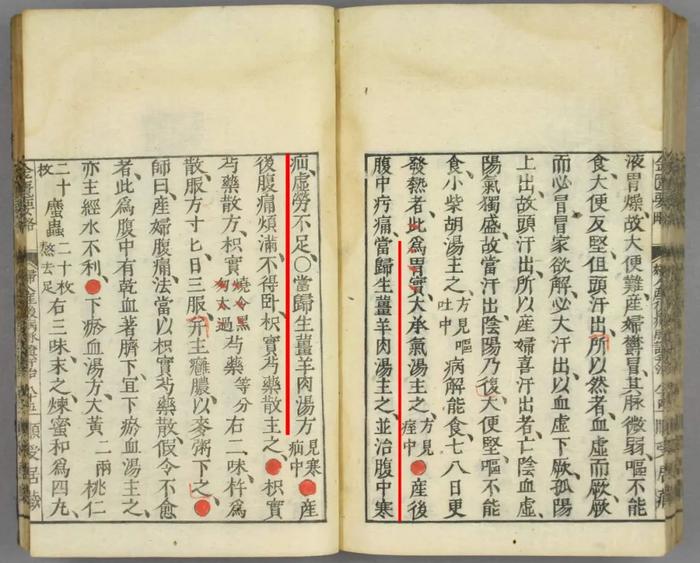 金匱要略
液胃燥故大便難産婦鬱冒其脉微弱嘔不能
食大便反堅但頭汗出所以然者血虛而厥厥
而必冒冒家欲解必大汗出以血虛下厥孤陽
上出故頭汗出所以産婦喜汗出者亡陰血虛
陽氣獨盛故當汗出陰陽乃復大便堅嘔不能
食小柴胡湯主之方見嘔吐中病解能食七八日更
發熱者此為胃實大承氣湯主之方見痓中●産後
腹中㽲痛當歸生薑羊肉湯主之並治腹中寒
疝虛勞不足○當歸生薑羊肉湯方見寒疝中●産
後腹痛煩滿不得卧枳實芍藥散主之●枳實
芍藥散方枳實燒令黑勿太過芍藥等分右二味杵為
散服方寸匕日三服并主癰膿以麥粥下之●
師曰産婦腹痛法當以枳實芍藥散假令不愈
者此為腹中有乾血著臍下宜下瘀血湯主之
亦主經水不利●下瘀血湯方大黃二兩桃仁
二十枚䗪蟲二十枚熬去足右三味末之煉蜜和為四丸
金匱要略